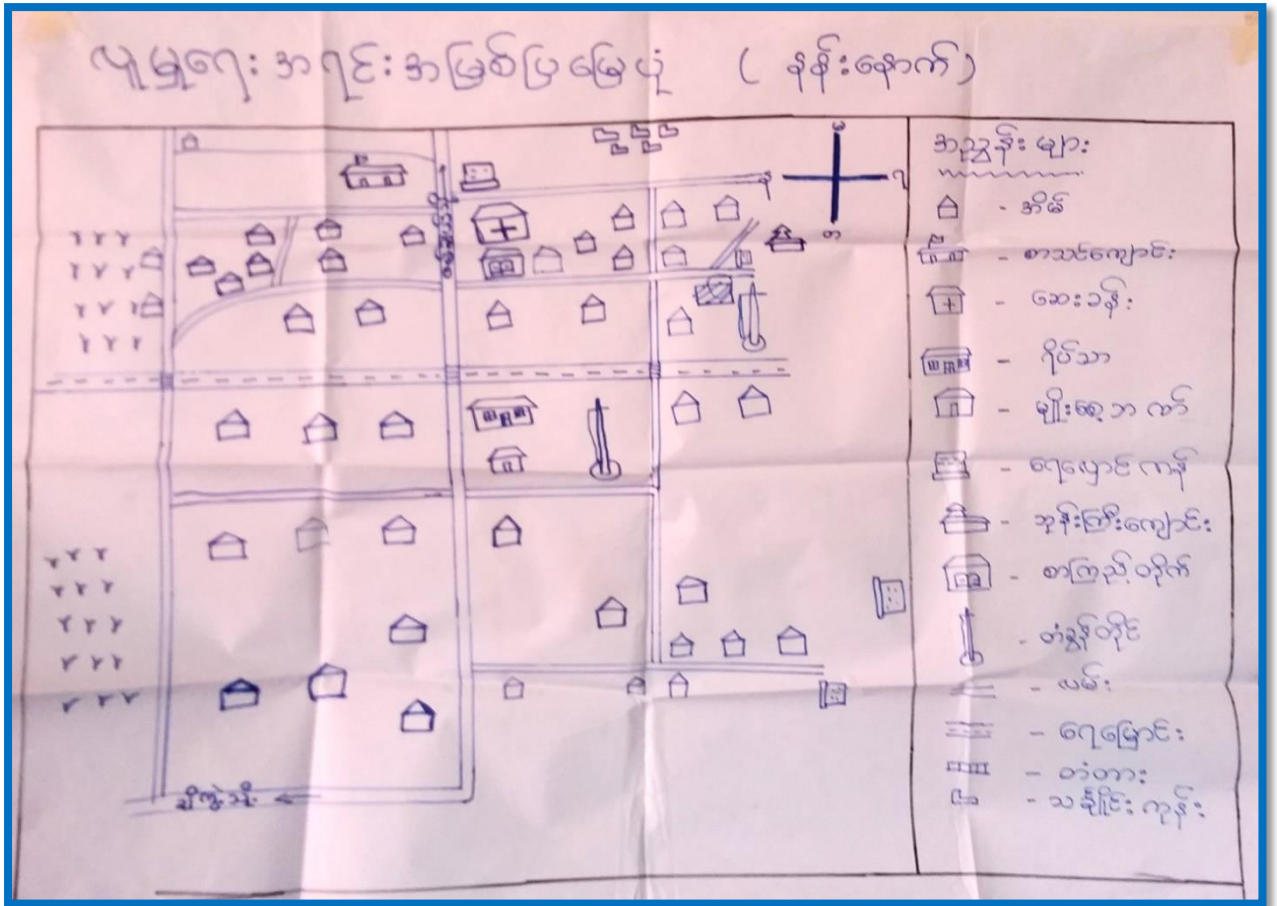 လူမှုရေးအရင်းအမြစ်ပြမြေပုံ ( နန်းနောက် )
အညွှန်းများ
- အိမ်
- စာသင်ကျောင်း
- ဆေးခန်း
- ရိပ်သာ
- မျိုးစေ့ဘဏ်
- ရေလှောင်ကန်
- ဘုန်းကြီးကျောင်း
- စာကြည့်တိုက်
- တံခွန်တိုင်
- လမ်း
- ရေမြောင်း
- တံတား
- သင်္ချိုင်းကုန်း